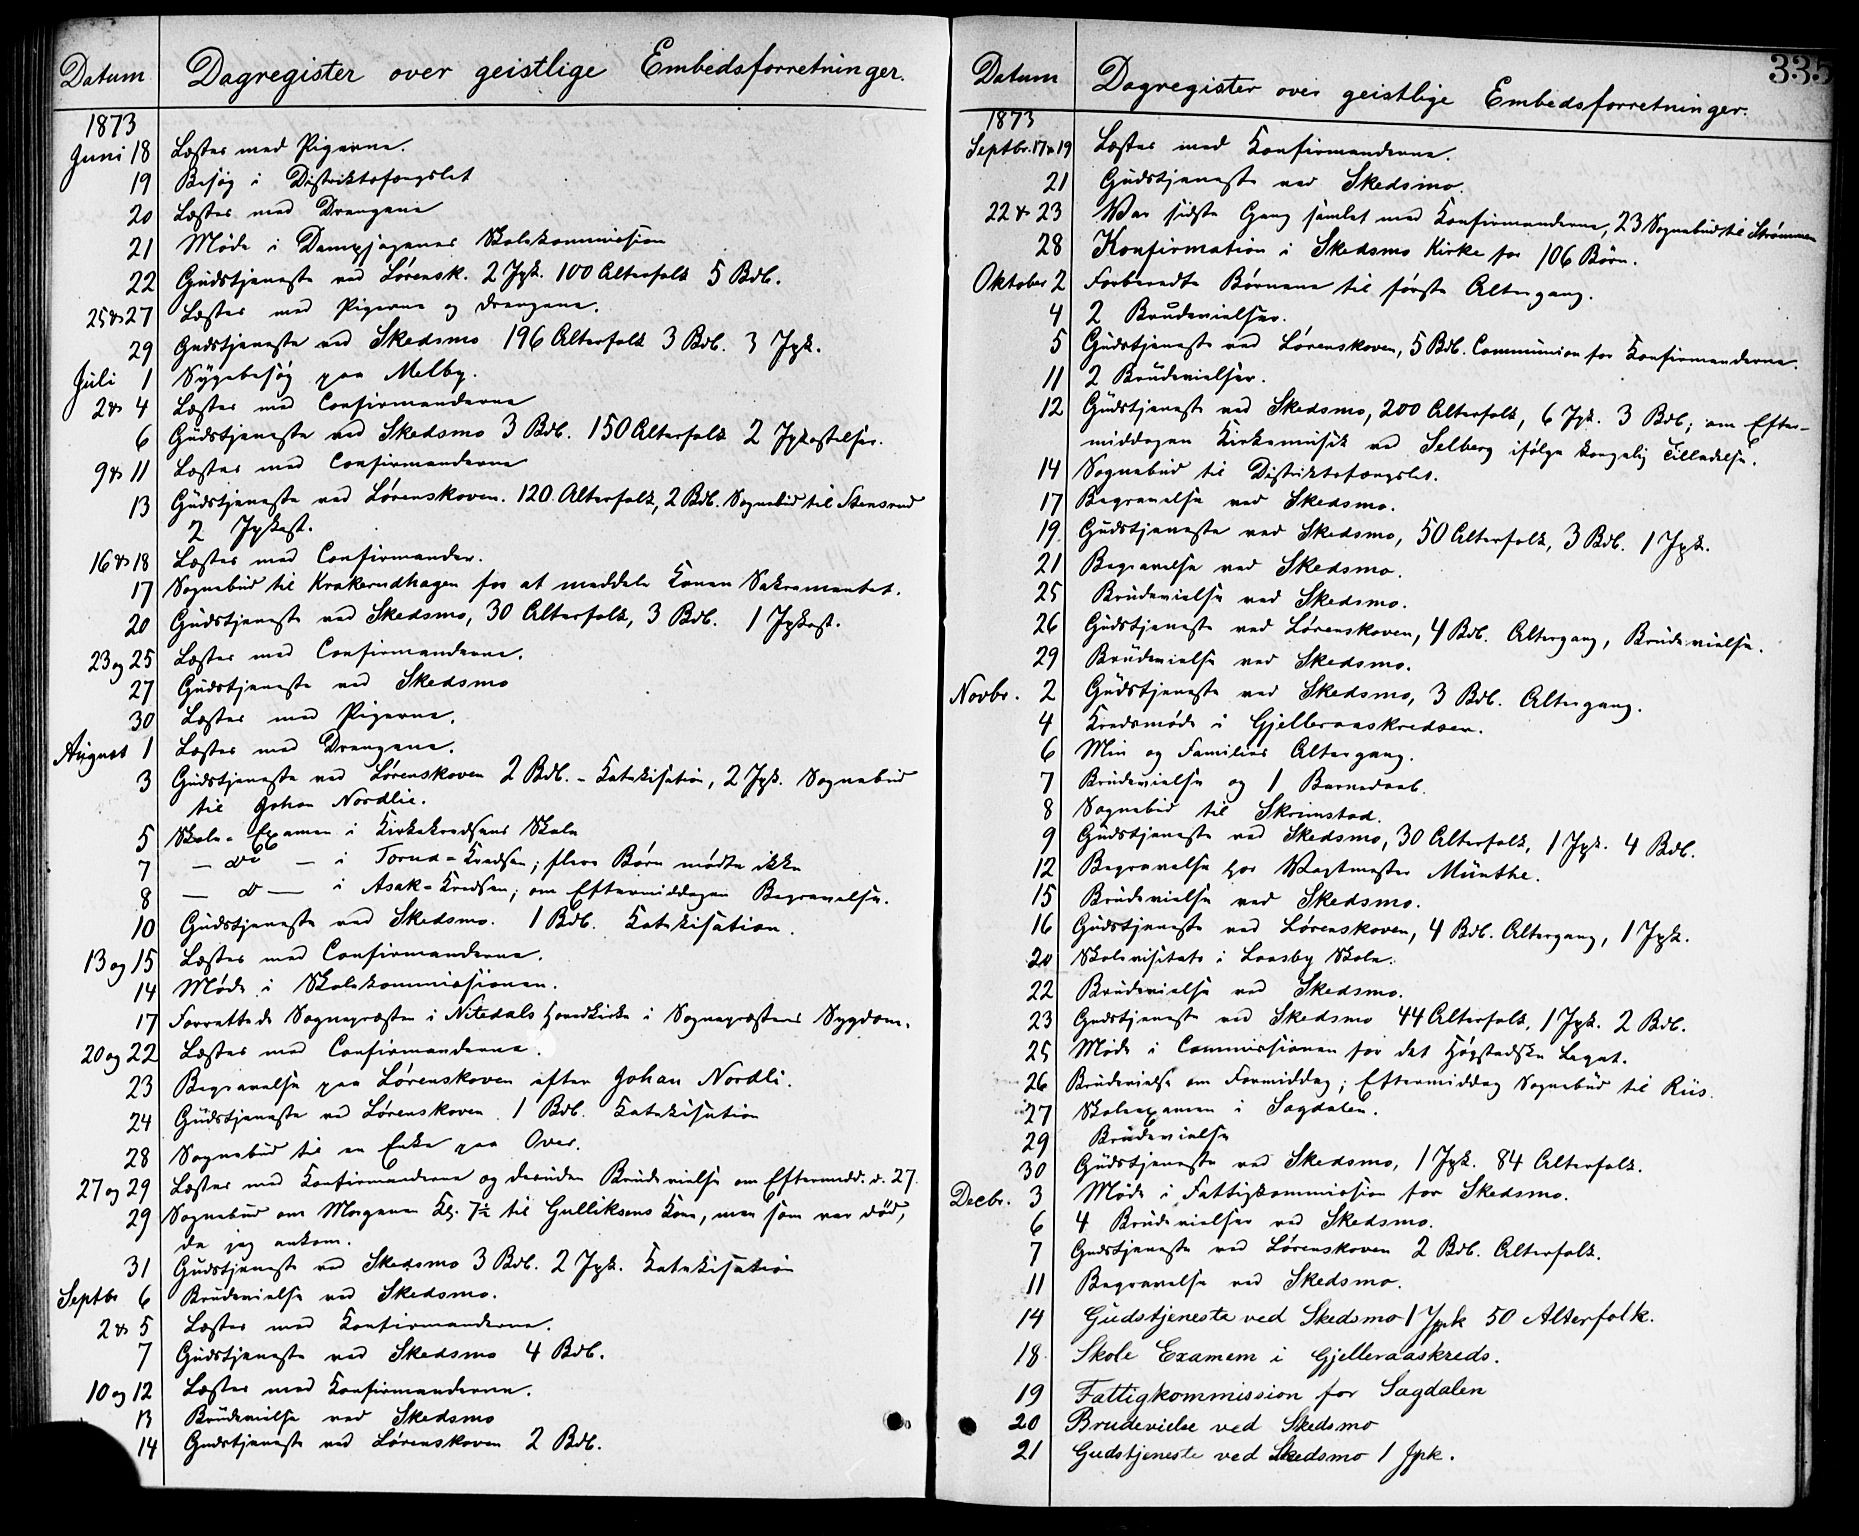 Datum Dagregister over geistlige Embedsforretninger.
1873
Juni 18 Læstes med Pigerne.
19 Besøg i Distriktsfængslet
20 Læstes med Drengene
21 Møde i Dampsagenes Skolekommission
22 Gudstjeneste ved Lørensk. 2 Jgk. 100 Alterfolk 5 Bdb.
25 & 27 Læstes med Pigerne og Drengene.
29 Gudstjeneste ved Skedsmo 196 Alterfolk 3 Bdb. 3 Jgk.
Juli 1 Sygebesøg paa Melby.
2 & 4 Læstes med Confirmanderne
6 Gudstjeneste ved Skedsmo 3 Bdb. 150 Alterfolk 2 Jgkastelser.
9 & 11 Læstes med Confirmanderne
13 Gudstjeneste ved Lørenskoven. 120 Alterfolk, 2 Bdb. Sognebud til Stensrud
2 Jgkast.
16 & 18 Læstes med Confirmander.
17 Sognebud til Krakerudhagen for at meddele Konen Sakramentet.
20 Gudstjeneste ved Skedsmo, 30 Alterfolk, 3 Bdb. 1 Jgkast.
23 og 25 Læstes med Confirmanderne.
27 Gudstjeneste ved Skedsmo
30 Læstes med Pigerne.
August 1 Læstes med Drengene.
3 Gudstjeneste ved Lørenskoven 2 Bdb. - Katekisation, 2 Jgk. Sognebud
til Johan Nordlie.
5 Skole-Examen i Kirkekredsens Skole
7 — do — i Torud-Kredsen; flere Børn mødte ikke
8 — d — i Asak-Kredsen; om Eftermiddagen Begravelse.
10 Gudstjeneste ved Skedsmo. 1 Bdb. Katekisation.
13 og 15 Læstes med Confirmanderne.
14 Møde i Skolekommissionen.
17 Forrettede Sognepræsten i Nitedals Hovedkirke i Sognepræstens Sygdom.
20 og 22 Læstes med Confirmanderne.
23 Begravelse paa Lørenskoven efter Johan Nordli.
24 Gudstjeneste ved Lørenskoven. 1 Bdb. Katekisation
28 Sognebud til en Enke paa Over.
27 og 29 Læstes med Konfirmanderne og desuden Brudevielse om Eftermidd. d. 27.
29 Sognebud om Morgenen Kl. 7½ til Gulliksens Kone, men som var død,
da jeg ankom.
31 Gudstjeneste ved Skedsmo 3 Bdb. 2 Jgk. Katekisation
Septbr 6 Brudevielse ved Skedsmo.
2 & 5 Læstes med Konfirmanderne.
7 Gudstjeneste ved Skedsmo 4 Bdb.
10 og 12 Læstes med Konfirmanderne.
13 Brudevielse ved Skedsmo
14 Gudstjeneste ved Lørenskoven 2 Bdb.
335
Datum Dagregister over geistlige Embedsforretninger.
1873
Septbr. 17 & 19 Læstes med Konfirmanderne.
21 Gudstjeneste ved Skedsmo.
22 & 23 Var sidste Gang samlet med Konfirmanderne, 23 Sognebud til Strømmen
28 Konfirmation i Skedsmo Kirke for 106 Børn.
Oktober 2 Forberedte Børnene til første Altergang.
4 2 Brudevielser.
5 Gudstjeneste ved Lørenskoven, 5 Bdb. Communion for Konfirmanderne.
11 2 Brudevielser.
12 Gudstjeneste ved Skedsmo, 200 Alterfolk, 6 Jgk. 3 Bdb; om Efter-
middagen Kirkemusik ved Selberg ifølge kongelig Tilladelse.
14 Sognebud til Distriktsfængslet.
17 Begravelse ved Skedsmo.
19. Gudstjeneste ved Skedsmo, 50 Alterfolk, 3 Bdb. 1 Jgk.
21 Begravelse ved Skedsmo.
25 Brudevielse ved Skedsmo.
26 Gudstjeneste ved Lørenskoven, 4 Bdb. Altergang, Brudevielse.
29 Brudevielse ved Skedsmo.
Novbr. 2 Gudstjeneste ved Skedsmo, 3 Bdb. Altergang.
4 Kredsmøde i Gjelleraaskredsen.
6 Min og Families Altergang.
7 Brudevielse og 1 Barnedaab.
8 Sognebud til Skrimstad.
9 Gudstjeneste ved Skedsmo, 30 Alterfolk, 1 Jgk. 4 Bdb.
12 Begravelse hos Vagtmester Münthe.
15 Brudevielse ved Skedsmo.
16 Gudstjeneste ved Lørenskoven, 4 Bdb. Altergang, 1 Jgk.
20 Skolevisitats i Laasby Skole.
22 Brudevielse ved Skedsmo.
23 Gudstjeneste ved Skedsmo 44 Alterfolk, 1 Jgk. 2 Bdb.
25 Møde i Commissionen for det Høgstadske Legat.
26 Brudevielse om Formiddag; Eftermiddag Sognebud til Riis.
27 Skoleexamen i Sagdalen.
29 Brudevielse
30 Gudstjeneste ved Skedsmo, 1 Jgk. 84 Alterfolk.
Decbr. 3 Møde i Fattigkommission for Skedsmo.
6 4 Brudevielser ved Skedsmo.
7 Gudstjeneste ved Lørenskoven 2 Bdb. Alterfolk.
11 Begravelse ved Skedsmo.
14 Gudstjeneste ved Skedsmo 1 Jgk 50 Alterfolk.
18 Skole Examem i Gjelleraaskreds.
19 Fattigkommission for Sagdalen
20 Brudevielse ved Skedsmo
21 Gudstjeneste ved Skedsmo 1 Jgk.